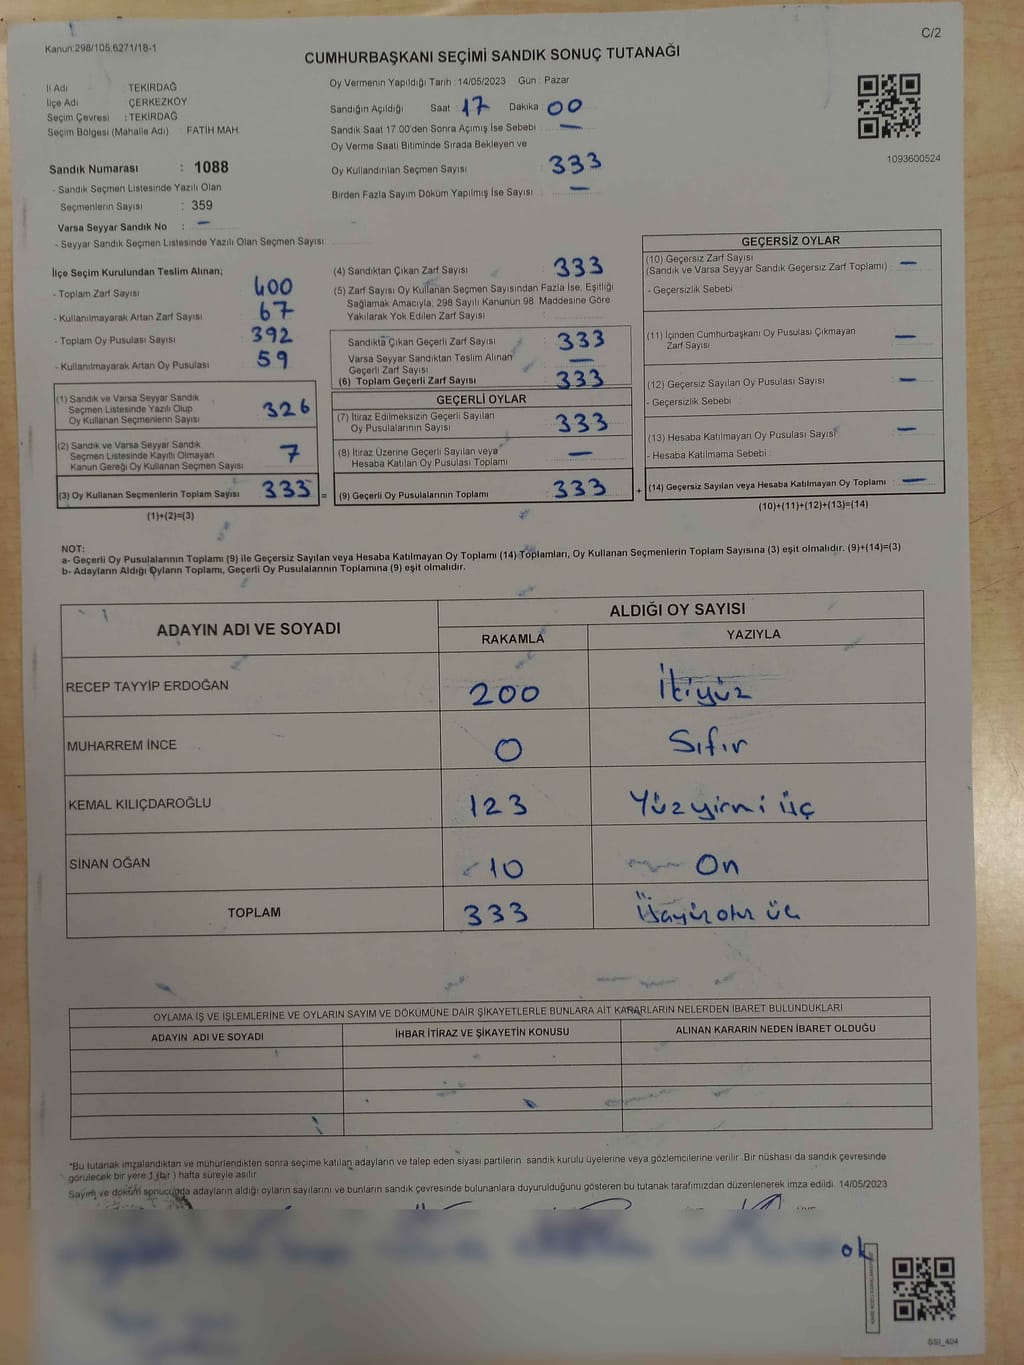 Kanun.298/105.6271/18-1
C/2
CUMHURBAŞKANI SEÇİMİ SANDIK SONUÇ TUTANAĞI
İl Adı TEKİRDAĞ
İlçe Adı ÇERKEZKÖY
Seçim Çevresi : TEKİRDAĞ
Seçim Bölgesi (Mahalle Adı) : FATİH MAH.
Sandık Numarası : 1088
- Sandık Seçmen Listesinde Yazılı Olan
Seçmenlerin Sayısı : 359
Varsa Seyyar Sandık No : –
- Seyyar Sandık Seçmen Listesinde Yazılı Olan Seçmen Sayısı:
Oy Vermenin Yapıldığı Tarih : 14/05/2023 Gün : Pazar
Sandığın Açıldığı Saat : 17 Dakika : 00
Sandık Saat 17.00'den Sonra Açımış İse Sebebi : –
Oy Verme Saati Bitiminde Sırada Bekleyen ve
Oy Kullandırılan Seçmen Sayısı : 333
Birden Fazla Sayım Döküm Yapılmış İse Sayısı : –
1093600524
İlçe Seçim Kurulundan Teslim Alınan;
- Toplam Zarf Sayısı : 400
- Kullanılmayarak Artan Zarf Sayısı : 67
- Toplam Oy Pusulası Sayısı : 392
- Kullanılmayarak Artan Oy Pusulası : 59
(1) Sandık ve Varsa Seyyar Sandık
Seçmen Listesinde Yazılı Olup
Oy Kullanan Seçmenlerin Sayısı : 326
(2) Sandık ve Varsa Seyyar Sandık
Seçmen Listesinde Kayıtlı Olmayan
Kanun Gereği Oy Kullanan Seçmen Sayısı : 7
(3) Oy Kullanan Seçmenlerin Toplam Sayısı : 333 =
(1)+(2)=(3)
(4) Sandıktan Çıkan Zarf Sayısı : 333
(5) Zarf Sayısı Oy Kullanan Seçmen Sayısından Fazla İse, Eşitliği
Sağlamak Amacıyla, 298 Sayılı Kanunun 98. Maddesine Göre
Yakılarak Yok Edilen Zarf Sayısı :
Sandıkta Çıkan Geçerli Zarf Sayısı : 333
Varsa Seyyar Sandıktan Teslim Alınan
Geçerli Zarf Sayısı : –
(6) Toplam Geçerli Zarf Sayısı : 333
GEÇERLİ OYLAR
(7) İtiraz Edilmeksizin Geçerli Sayılan
Oy Pusulalarının Sayısı : 333
(8) İtiraz Üzerine Geçerli Sayılan veya
Hesaba Katılan Oy Pusulası Toplamı : –
(9) Geçerli Oy Pusulalarının Toplamı : 333 +
GEÇERSİZ OYLAR
(10) Geçersiz Zarf Sayısı
(Sandık ve Varsa Seyyar Sandık Geçersiz Zarf Toplamı) : –
- Geçersizlik Sebebi :
(11) İçinden Cumhurbaşkanı Oy Pusulası Çıkmayan
Zarf Sayısı : –
(12) Geçersiz Sayılan Oy Pusulası Sayısı : –
- Geçersizlik Sebebi :
(13) Hesaba Katılmayan Oy Pusulası Sayısı : –
- Hesaba Katılmama Sebebi :
(14) Geçersiz Sayılan veya Hesaba Katılmayan Oy Toplamı : –
(10)+(11)+(12)+(13)=(14)
NOT:
a- Geçerli Oy Pusulalarının Toplamı (9) ile Geçersiz Sayılan veya Hesaba Katılmayan Oy Toplamı (14) Toplamları, Oy Kullanan Seçmenlerin Toplam Sayısına (3) eşit olmalıdır. (9)+(14)=(3)
b- Adayların Aldığı Oyların Toplamı, Geçerli Oy Pusulalarının Toplamına (9) eşit olmalıdır.
ADAYIN ADI VE SOYADI
ALDIĞI OY SAYISI
RAKAMLA YAZIYLA
RECEP TAYYİP ERDOĞAN 200 İkiyüz
MUHARREM İNCE 0 Sıfır
KEMAL KILIÇDAROĞLU 123 Yüzyirmi üç
SİNAN OĞAN 10 On
TOPLAM 333
OYLAMA İŞ VE İŞLEMLERİNE VE OYLARIN SAYIM VE DÖKÜMÜNE DAİR ŞİKAYETLERLE BUNLARA AİT KARARLARIN NELERDEN İBARET BULUNDUKLARI
ADAYIN ADI VE SOYADI İHBAR İTİRAZ VE ŞİKAYETİN KONUSU ALINAN KARARIN NEDEN İBARET OLDUĞU
*Bu tutanak imzalandıktan ve mühürlendikten sonra seçime katılan adayların ve talep eden siyasi partilerin sandık kurulu üyelerine veya gözlemcilerine verilir. Bir nüshası da sandık çevresinde
görülecek bir yere 1 (bir) hafta süreyle asılır.
Sayım ve döküm sonucunda adayların aldığı oyların sayılarını ve bunların sandık çevresinde bulunanlara duyurulduğunu gösteren bu tutanak tarafımızdan düzenlenerek imza edildi. 14/05/2023
ok
SSI_404